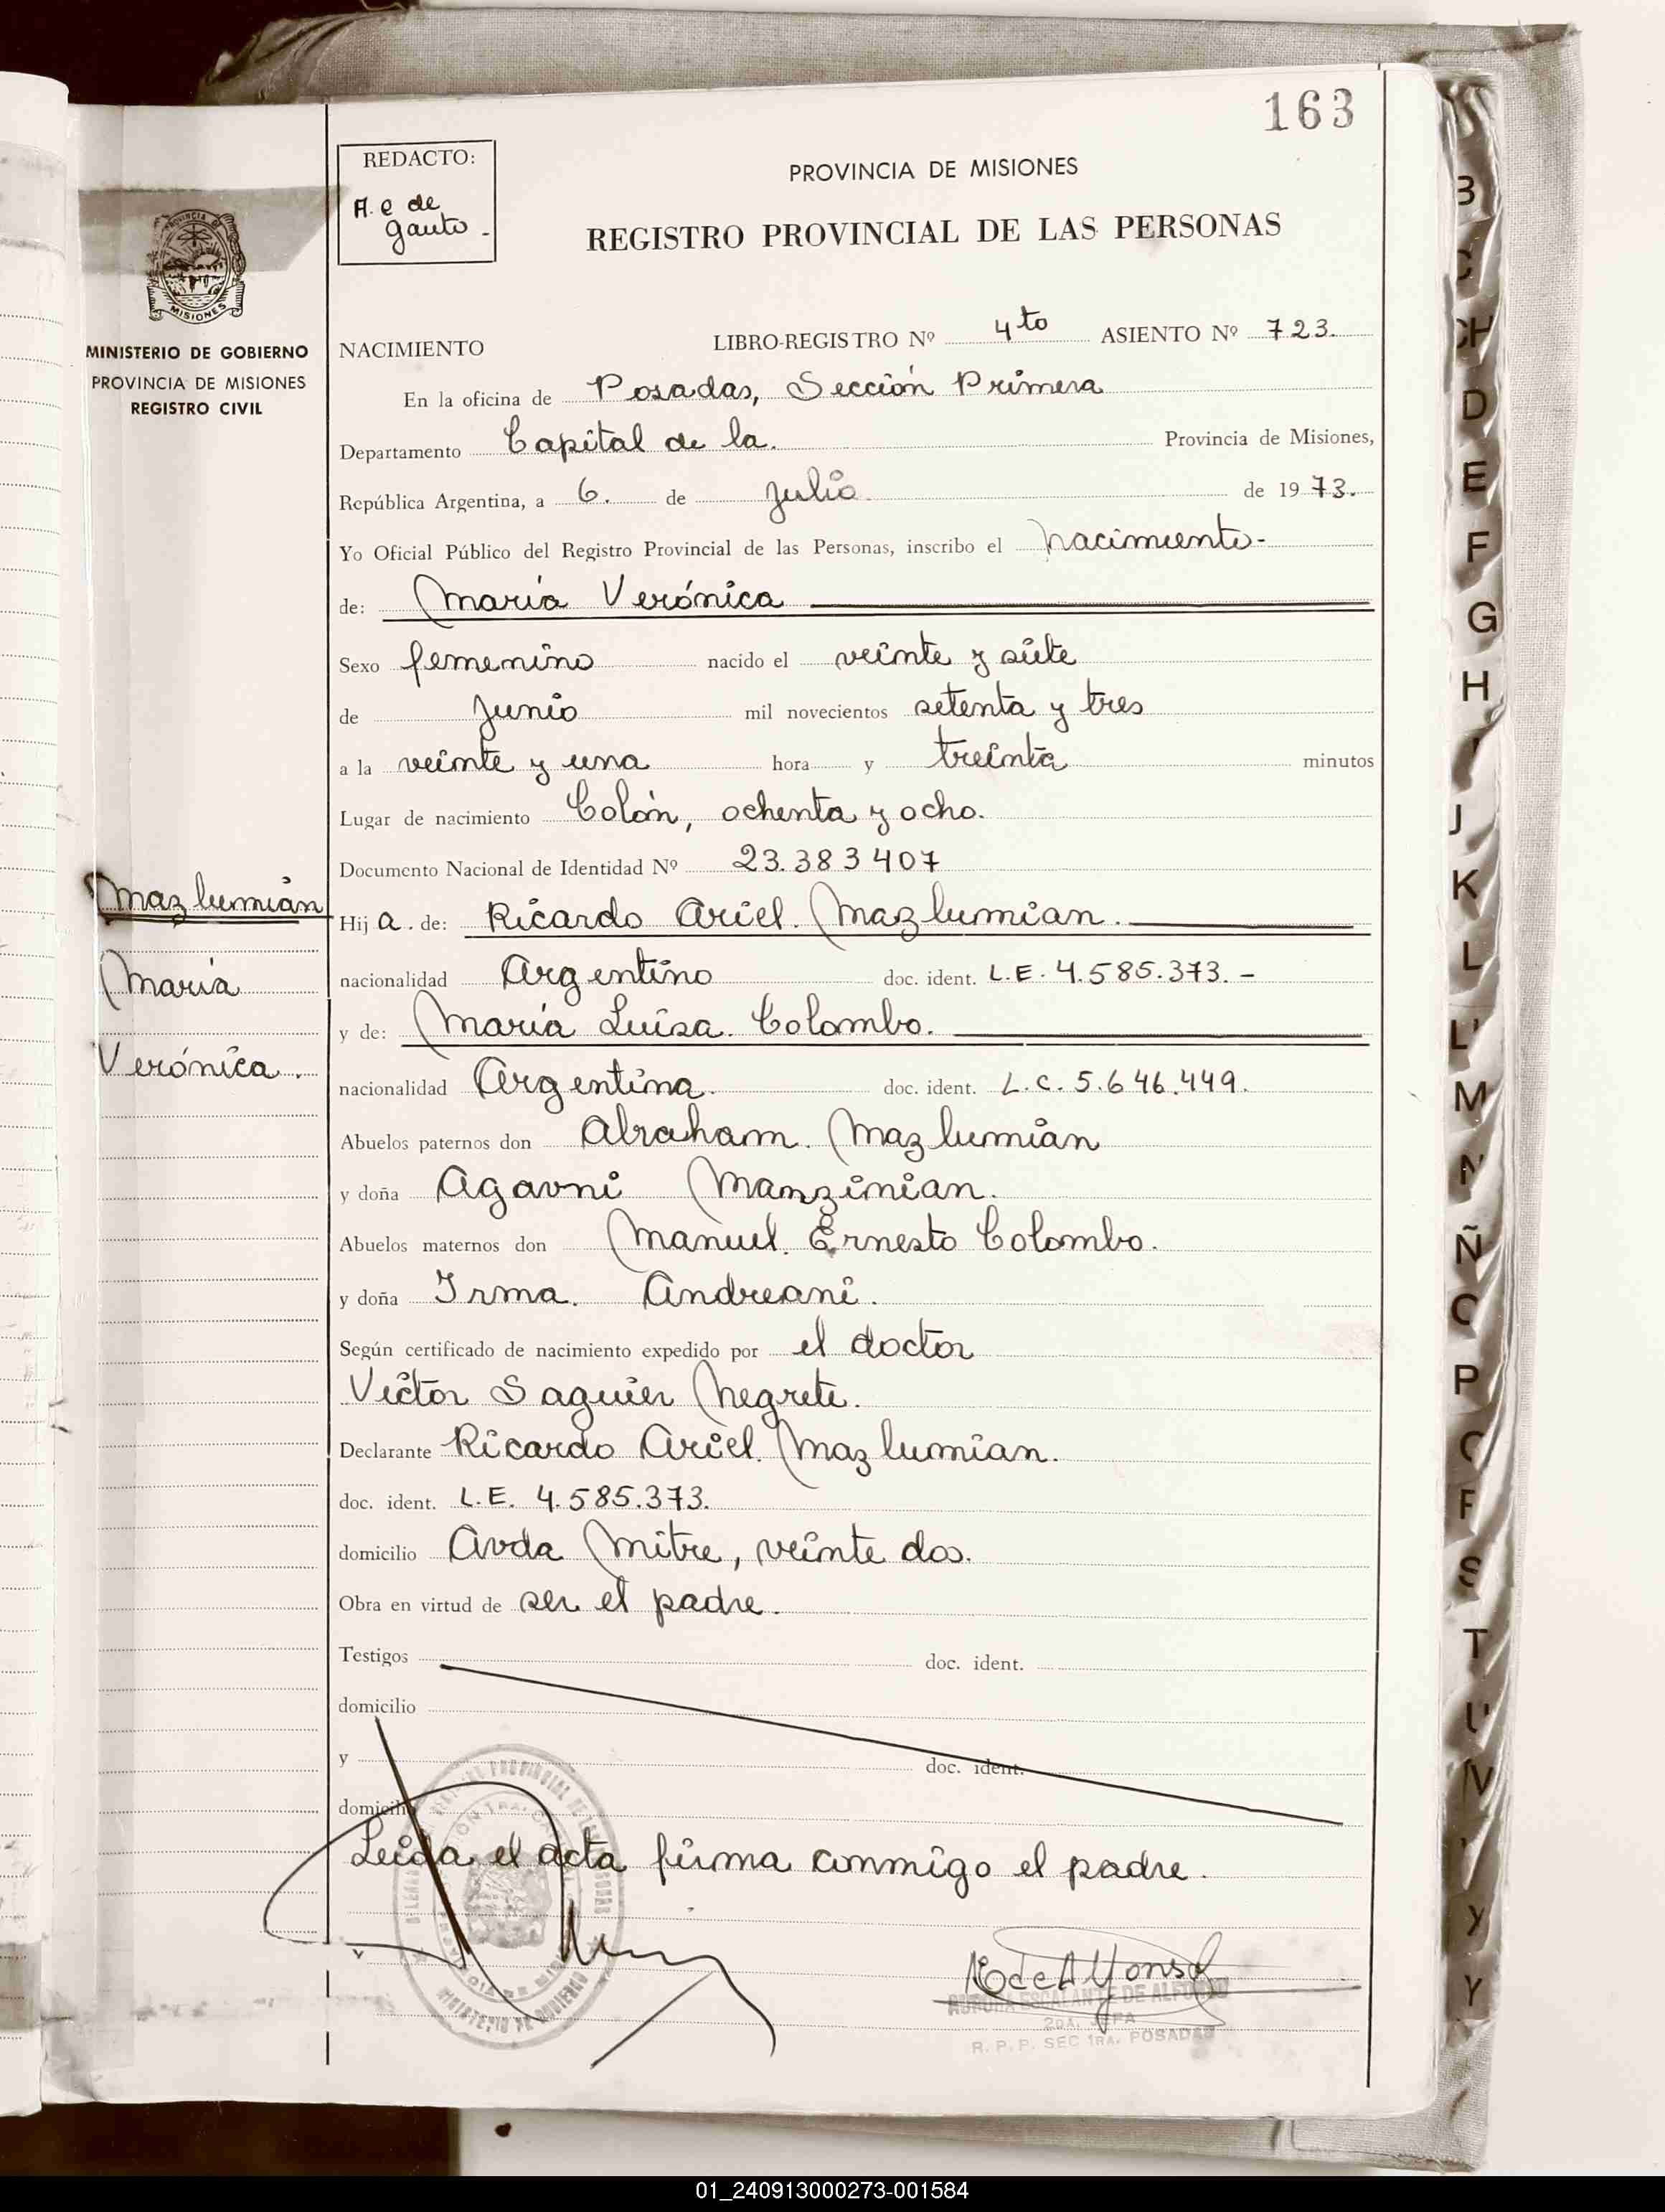 163
REDACTO:
A. e de
Gauto -
PROVINCIA DE MISIONES
REGISTRO PROVINCIAL DE LAS PERSONAS
PROVINCIA DE
MISIONES
MINISTERIO DE GOBIERNO
PROVINCIA DE MISIONES
REGISTRO CIVIL
NACIMIENTO LIBRO-REGISTRO Nº 4to ASIENTO Nº 723.
En la oficina de Posadas, Sección Primera
Departamento Capital de la. Provincia de Misiones,
República Argentina, a 6. de Julio. de 1973.
Yo Oficial Público del Registro Provincial de las Personas, inscribo el nacimiento-
de: María Verónica
Sexo femenino nacido el veinte y siete
de Junio mil novecientos setenta y tres
a la veinte y una hora y treinta minutos
Lugar de nacimiento Colón, ochenta y ocho.
Documento Nacional de Identidad Nº 23.383407
Mazlumián
María
Verónica.
Hij a. de: Ricardo Ariel. Mazlumian.
nacionalidad Argentino doc. ident. L.E. 4.585.373. -
y de: María Luisa. Colombo.
nacionalidad Argentina. doc. ident. L.C. 5.646.449.
Abuelos paternos don Abraham. Mazlumián
y doña Agavni Manzinian.
Abuelos maternos don Manuel. Ernesto Colombo.
y doña Irma. Andreani.
Según certificado de nacimiento expedido por el doctor
Victor Saguier Negrete.
Declarante Ricardo Ariel. Mazlumian.
doc. ident. L.E. 4.585.373.
domicilio Avda Mitre, veinte dos.
Obra en virtud de ser el padre.
Testigos doc. ident.
domicilio
y doc. ident.
domicilio
Leida el acta firma conmigo el padre.
E de Alfonso
AURORA ESCALANTE DE ALFONSO
2DA. JEFA
R. P. P. SEC 1RA. POSADAS
MINISTERIO DE GOBIERNO
B
CH
D
E
F
G
H
I
J
K
L
M
N
Ñ
P
S
T
U
V
Y
01_240913000273-001584